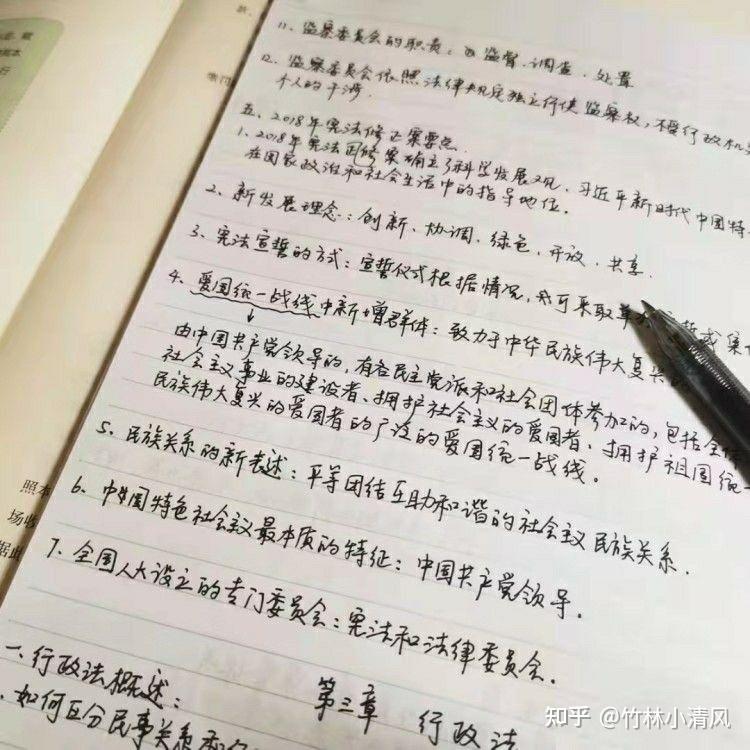 11、监察委员会的职责：监督、调查、处置
12、监察委员会依照法律规定独立行使监察权，不受行政机
个人的干涉.
五、2018年宪法修正案要点
1、2018年宪法修案确立了科学发展观、习近平新时代中国特
在国家政治和社会生活中的指导地位.
2、新发展理念：创新、协调、绿色、开放、共享.
3、宪法宣誓的方式：宣誓仪式根据情况，可采取
4、爱国统一战线中新增群体：致力于中华民族伟大复兴
由中国共产党领导的，有各民主党派和社会团体参加的，包括全体
社会主义事业的建设者、拥护社会主义的爱国者、拥护祖国统一
民族伟大复兴的爱国者的广泛的爱国统一战线。
5、民族关系的新表述：平等团结互助和谐的社会主义民族关系.
6、中国特色社会主义最本质的特征：中国共产党领导.
7、全国人大设立的专门委员会：宪法和法律委员会.
第三章 行政法
一、行政法概述：
、如何区分民事关系和
照本
场收
据此
知乎 @竹林小清风